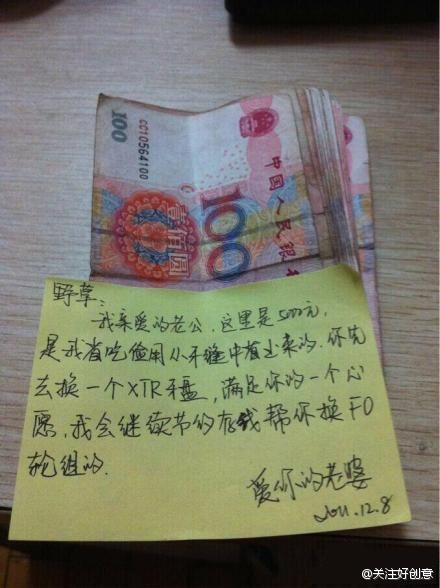 100
CC10564100
中国人民银
100
壹佰圆
野草:
我亲爱的老公,这里是5000元,
是我省吃俭用从牙缝中省出来的.你先
去换一个XTR牙盘,满足你的一个心
愿,我会继续节约存钱帮你换FO
轮组的.
爱你的老婆
2011.12.8
@关注好创意